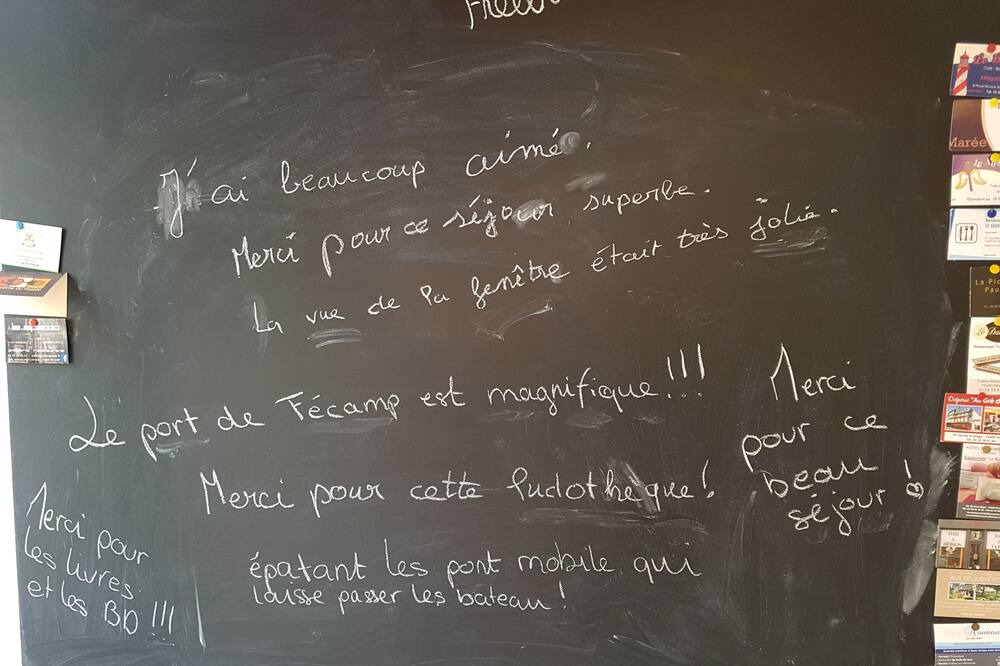 J'ai beaucoup aimé.
Merci pour ce séjour superbe.
La vue de la fenêtre était très jolie.
Le port de Fécamp est magnifique!!!
Merci pour cette ludothèque!
épatant les pont mobile qui
laisse passer les bateau!
Merci
pour ce
beau
séjour!
Merci pour
les livres
et les BD!!!
Marée
La Pic
Crêperie "Au Gré d